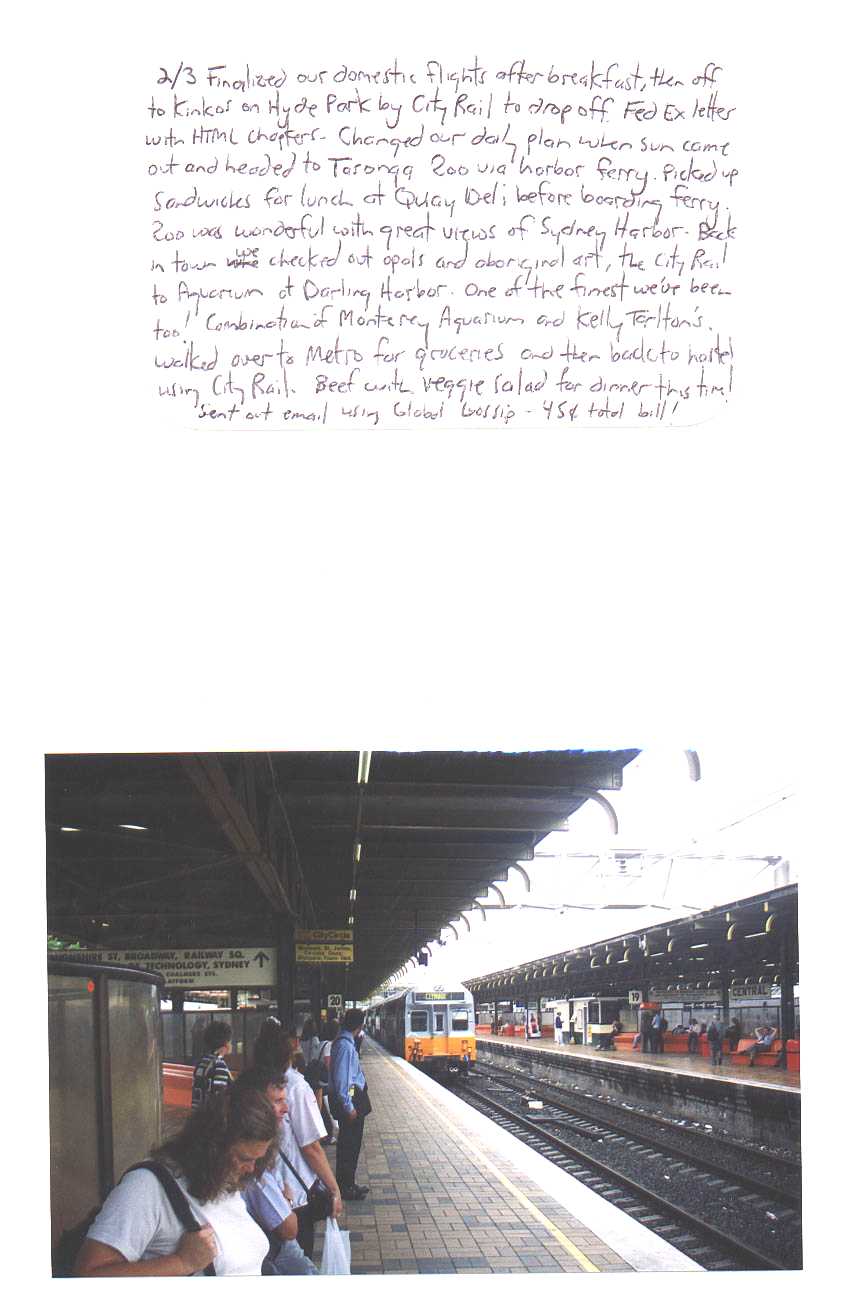 2/3 Finalized our domestic flights after breakfast, then off
to Kinkos on Hyde Park by City Rail to drop off Fed Ex letter
with HTML chapters - Changed our daily plan when sun came
out and headed to Taronga Zoo via harbor ferry. Picked up
Sandwiches for lunch at Quay Deli before boarding ferry.
Zoo was wonderful with great views of Sydney Harbor. Back
in town we checked out opals and aboriginal art, the City Rail
to Aquarium at Darling Harbor. One of the finest we've been
too! Combination of Monterey Aquarium and Kelly Tarlton's.
Walked over to Metro for groceries and then back to hostel
using City Rail. Beef with veggie salad for dinner this time!
Sent out email using Global Gossip - 45¢ total bill!
CityCircle
ST, BROADWAY, RAILWAY SQ.
OF TECHNOLOGY, SYDNEY
CHALMERS STS.
20
19
CENTRAL